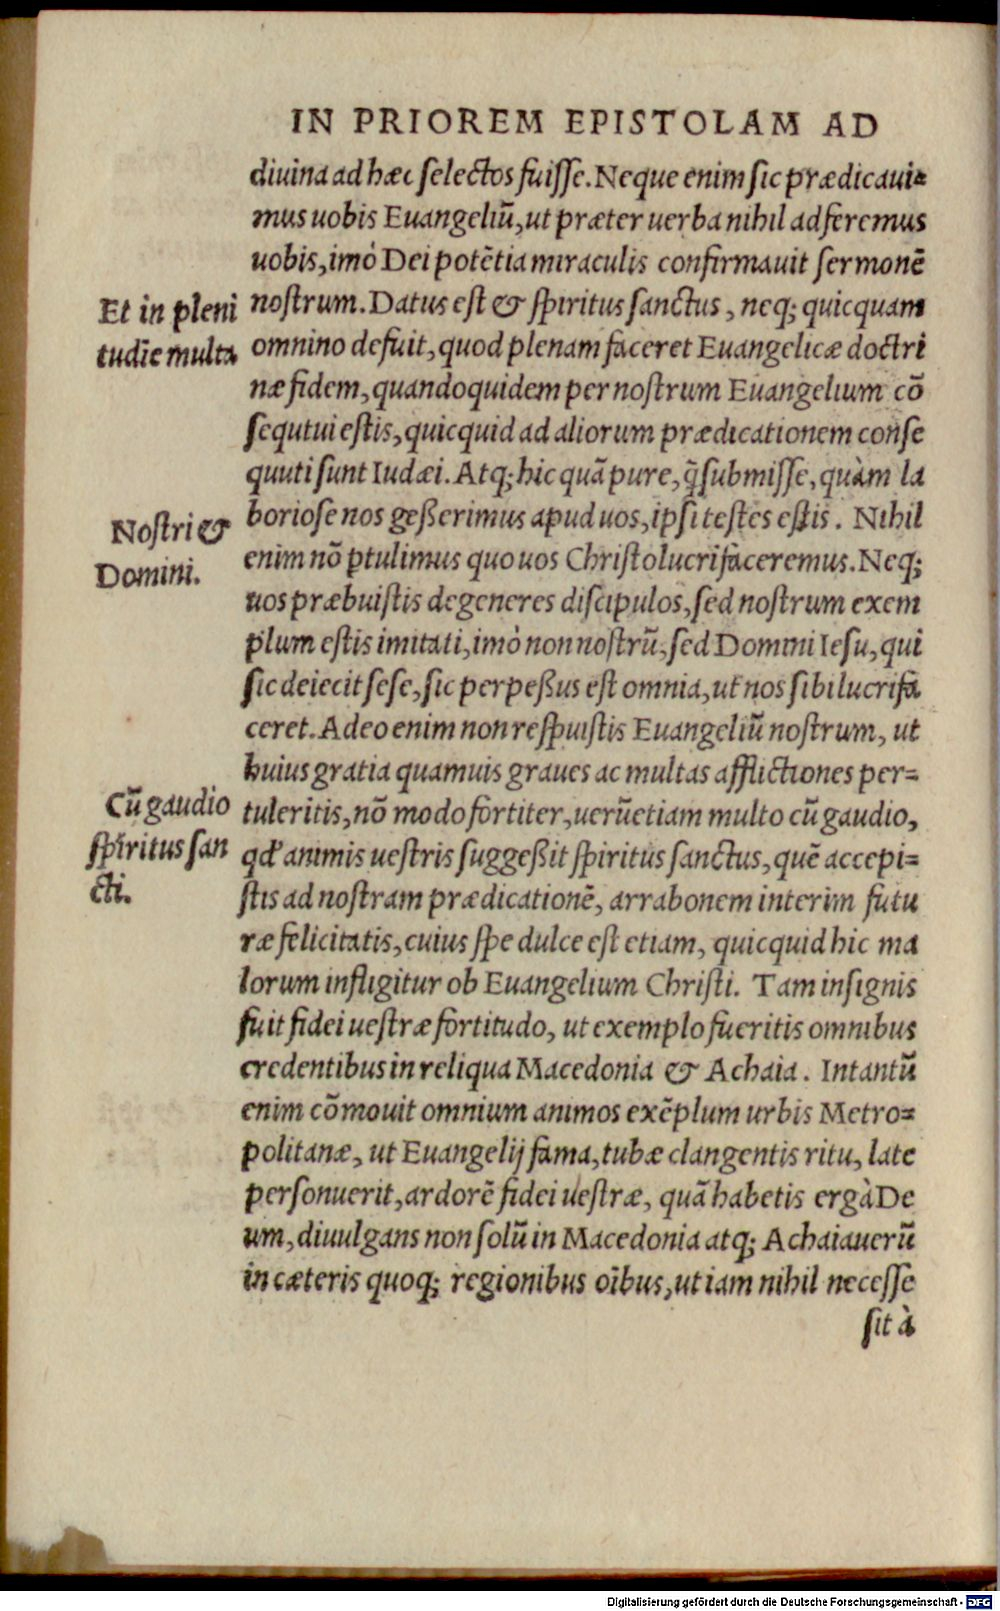 IN PRIOREM EPISTOLAM AD
diuina ad hæc selectos fuisse. Neque enim sic prædicaui-
mus uobis Euangeliũ, ut præter uerba nihil adferemus
uobis, imò Dei potẽtia miraculis confirmauit sermonẽ
Et in pleni
tudĩe multa
nostrum. Datus est & spiritus sanctus, neq; quicquam
omnino defuit, quod plenam faceret Euangelicæ doctri
næ fidem, quandoquidem per nostrum Euangelium cõ
sequtui estis, quicquid ad aliorum prædicationem conse
quuti sunt Iudæi. Atq; hic quã pure, q̃ submisse, quàm la
Nostri &
Domini.
boriose nos geßerimus apud uos, ipsi testes estis. Nihil
enim nõ ꝑtulimus quo uos Christo lucrifaceremus. Neq;
uos præbuistis degeneres discipulos, sed nostrum exem
plum estis imitati, imò non nostrũ, sed Domini Iesu, qui
sic deiecit sese, sic perpeßus est omnia, ut nos sibi lucrifa
ceret. Adeo enim non respuistis Euangeliũ nostrum, ut
huius gratia quamuis graues ac multas afflictiones per-
Cũ gaudio
spiritus san
cti.
tuleritis, nõ modo fortiter, uerũetiam multo cũ gaudio,
qđ animis uestris suggeßit spiritus sanctus, quẽ accepi-
stis ad nostram prædicationẽ, arrabonem interim futu
ræ felicitatis, cuius spe dulce est etiam, quicquid hic ma
lorum infligitur ob Euangelium Christi. Tam insignis
fuit fidei uestræ fortitudo, ut exemplo fueritis omnibus
credentibus in reliqua Macedonia & Achaia. Intantũ
enim cõmouit omnium animos exẽplum urbis Metro-
politanæ, ut Euangelij fama, tubæ clangentis ritu, late
personuerit, ardorẽ fidei uestræ, quã habetis ergà De
um, diuulgans non solũ in Macedonia atq; Achaia uerũ
in cæteris quoq; regionibus oĩbus, ut iam nihil necesse
sit à
Digitalisierung gefördert durch die Deutsche Forschungsgemeinschaft - DFG